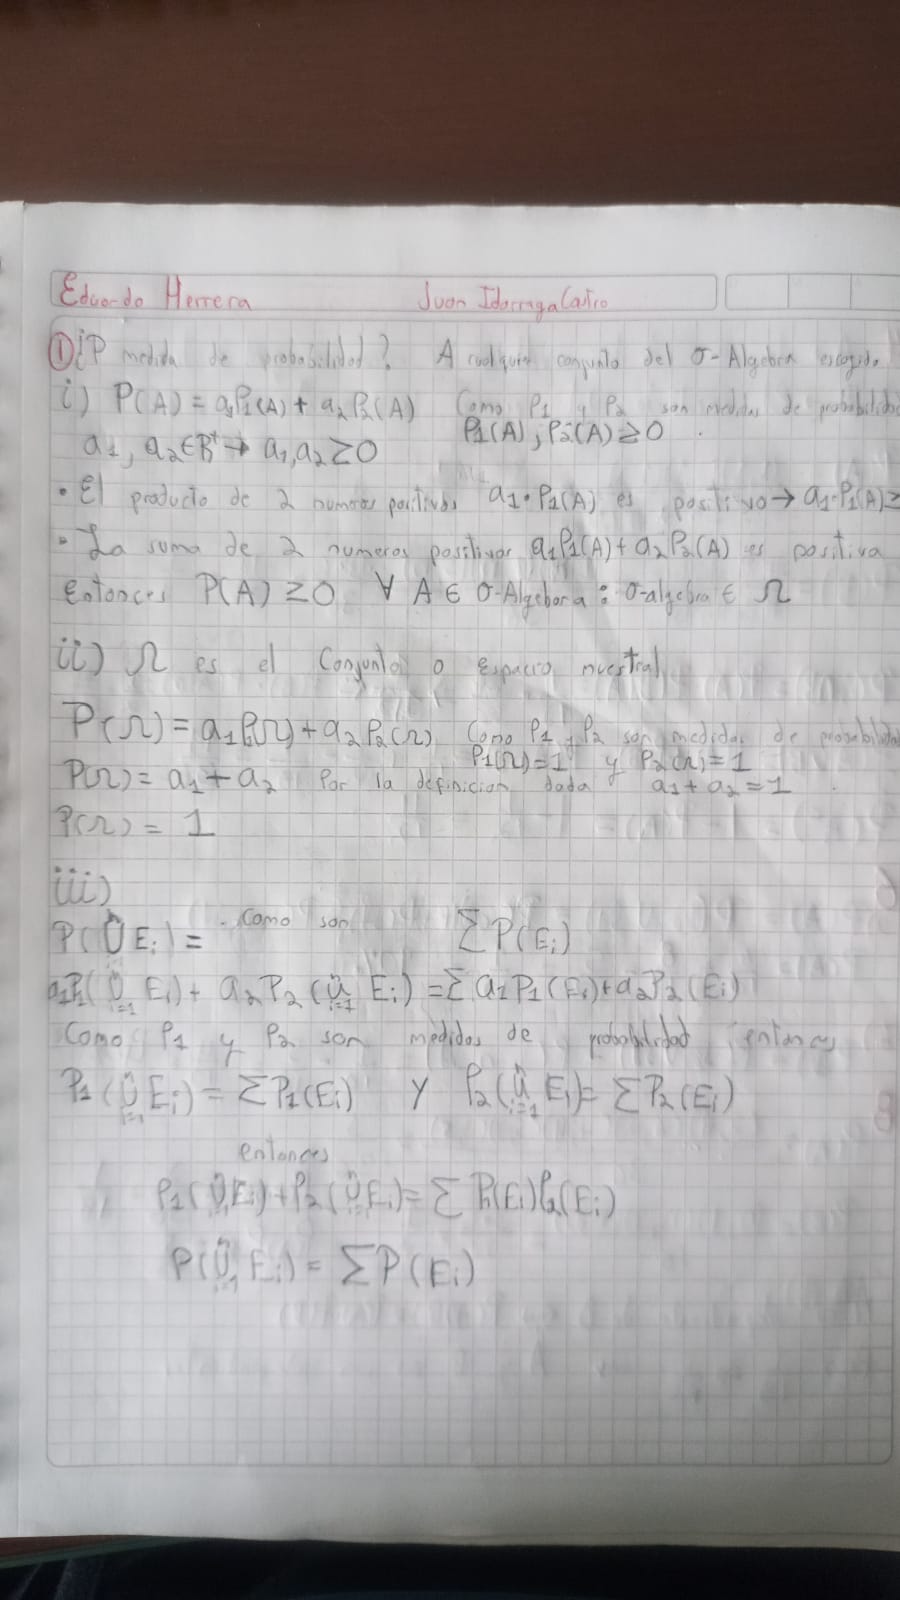 Eduardo Herrera Juan Idarraga Castro
① ¿P medida de probabilidad? A cualquier conjunto del σ-Algebra escogido
i) P(A) = a₁P₁(A) + a₂P₂(A) Como P₁ y P₂ son medidas de probabilidad
a₁, a₂ ∈ R⁺ → a₁, a₂ ≥ 0 P₁(A), P₂(A) ≥ 0
• El producto de 2 numeros positivos a₁·P₁(A) es positivo → a₁·P₁(A) ≥
• La suma de 2 numeros positivos a₁P₁(A) + a₂P₂(A) es positiva
Entonces P(A) ≥ 0 ∀ A ∈ σ-Algebora : σ-algebra ∈ Ω
ii) Ω es el Conjunto o espacio muestral
P(Ω) = a₁P₁(Ω) + a₂P₂(Ω) Como P₁ y P₂ son medidas de probabilidad
P₁(Ω) = 1 y P₂(Ω) = 1
P(Ω) = a₁ + a₂ Por la definicion dada a₁ + a₂ = 1
P(Ω) = 1
iii)
P(∪ Eᵢ) = Como son ΣP(Eᵢ)
a₁P₁(∪ᵢ₌₁ Eᵢ) + a₂P₂(∪ᵢ₌₁ Eᵢ) = Σ a₁P₁(Eᵢ) + a₂P₂(Eᵢ)
Como P₁ y P₂ son medidas de probabilidad entonces
P₁(∪ᵢ₌₁ Eᵢ) = ΣP₁(Eᵢ) Y P₂(∪ᵢ₌₁ Eᵢ) = ΣP₂(Eᵢ)
entonces
P₁(∪ Eᵢ) + P₂(∪ Eᵢ) = Σ P₁(Eᵢ)P₂(Eᵢ)
P(∪ Eᵢ) = ΣP(Eᵢ)